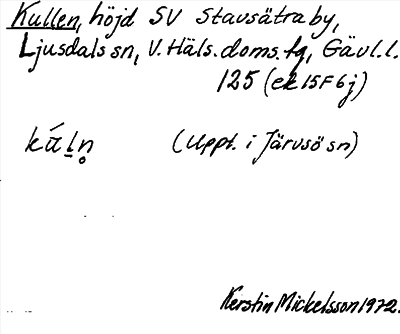 Kullen, höjd SV Stavsätra by,
Ljusdals sn, V. Häls. doms. fg, Gävl. l.
125 (ek 15F6j)
ká̱l̥n (Uppt. i Järvsö sn)
Kerstin Mickelsson 1972.